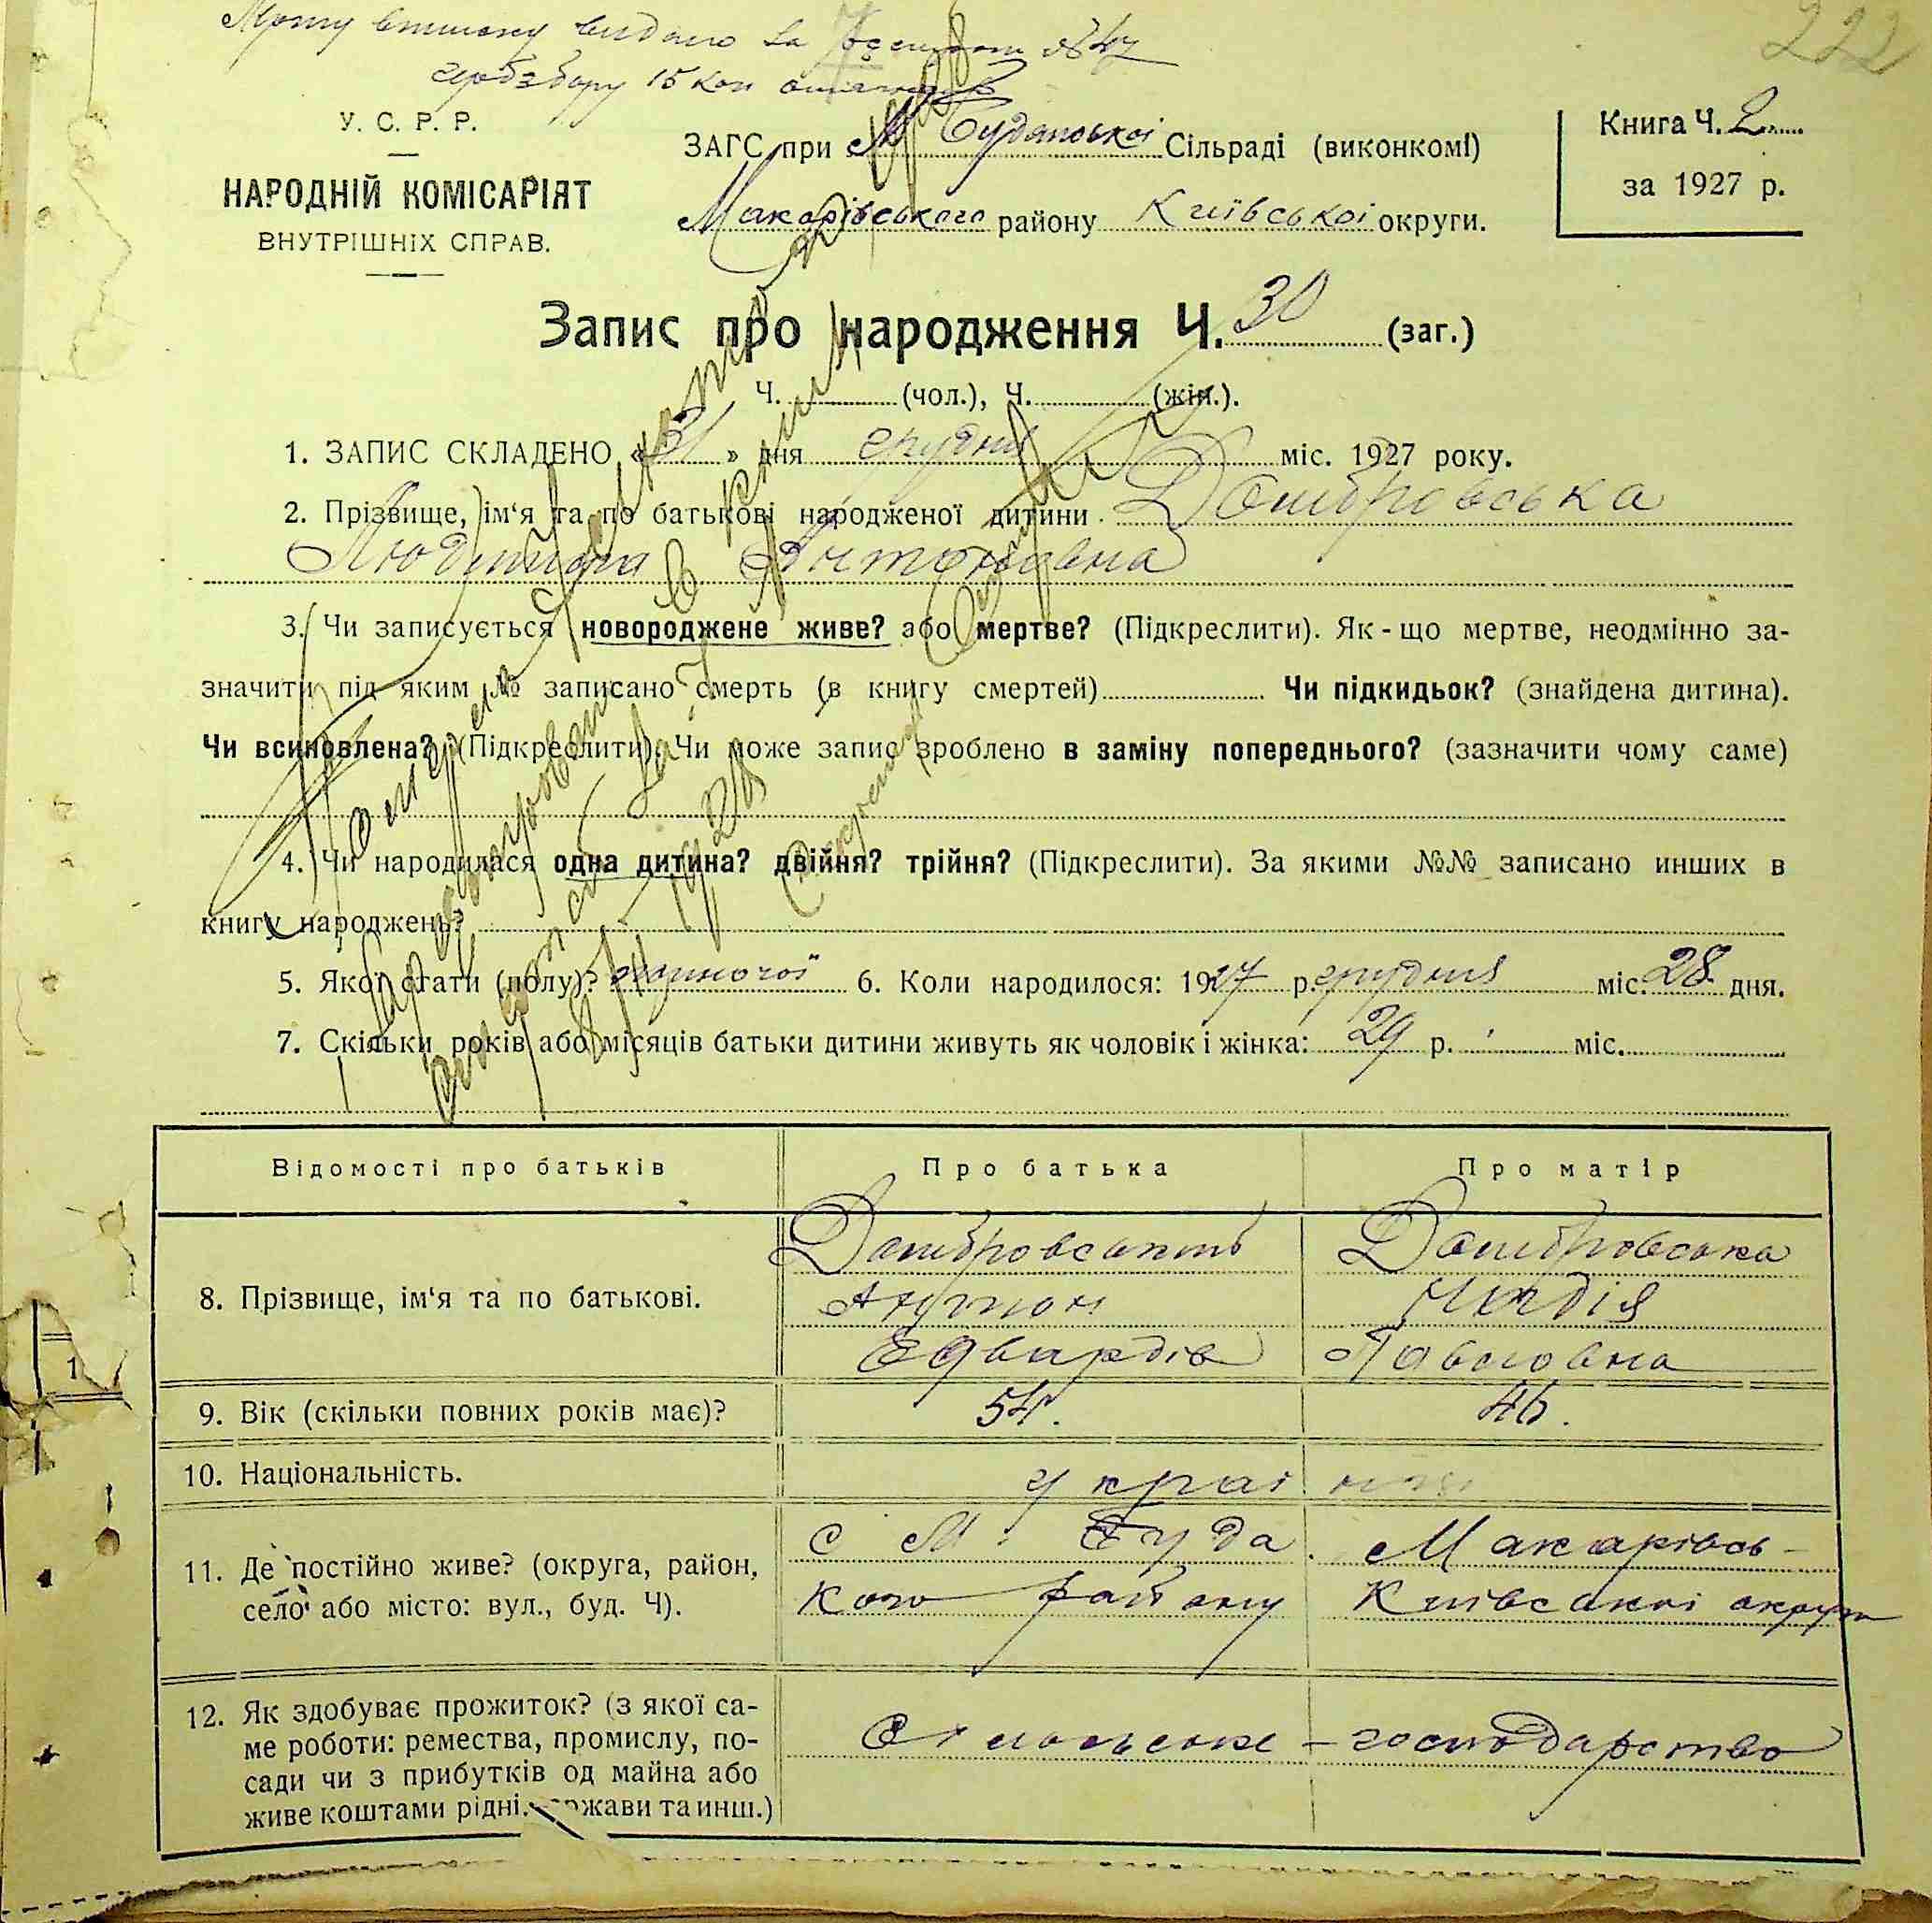 222
видано за № 47
15 коп
У. С. Р. Р.
НАРОДНІЙ КОМІСАРІЯТ
ВНУТРІШНІХ СПРАВ.
ЗАГС при М Будянської Сільраді (виконкомі)
Макарівського району Київської округи.
Книга Ч. 2
за 1927 р.
Запис про народження Ч. 30 (заг.)
Ч. (чол.), Ч. (жін.).
1. ЗАПИС СКЛАДЕНО «31» дня грудня міс. 1927 року.
2. Прізвище, ім'я та по батькові народженої дитини Домбровська
Людмила Антоновна
3. Чи записується новороджене живе? або мертве? (Підкреслити). Як-що мертве, неодмінно за-
значити під яким № записано смерть (в книгу смертей) Чи підкидьок? (знайдена дитина).
Чи всиновлена? (Підкреслити). Чи може запис зроблено в заміну попереднього? (зазначити чому саме)
4. Чи народилася одна дитина? двійня? трійня? (Підкреслити). За якими №№ записано инших в
книгу народжень?
5. Якої стати (полу)? жиночої 6. Коли народилося: 1927 р. грудня міс. 28 дня.
7. Скільки років або місяців батьки дитини живуть як чоловік і жінка: 29 р. міс.
Відомості про батьків Про батька Про матір
8. Прізвище, ім'я та по батькові.
Домбровський Домбровська
Антон
Едвардів Павловна
9. Вік (скільки повних років має)? 54. 46.
10. Національність. украі
11. Де постійно живе? (округа, район,
село або місто: вул., буд. Ч).
с М. Буда Макарівсь-
кого району Київської округи
12. Як здобуває прожиток? (з якої са-
ме роботи: ремества, промислу, по-
сади чи з прибутків од майна або
живе коштами рідні, держави та инш.)
Сільське - господарство